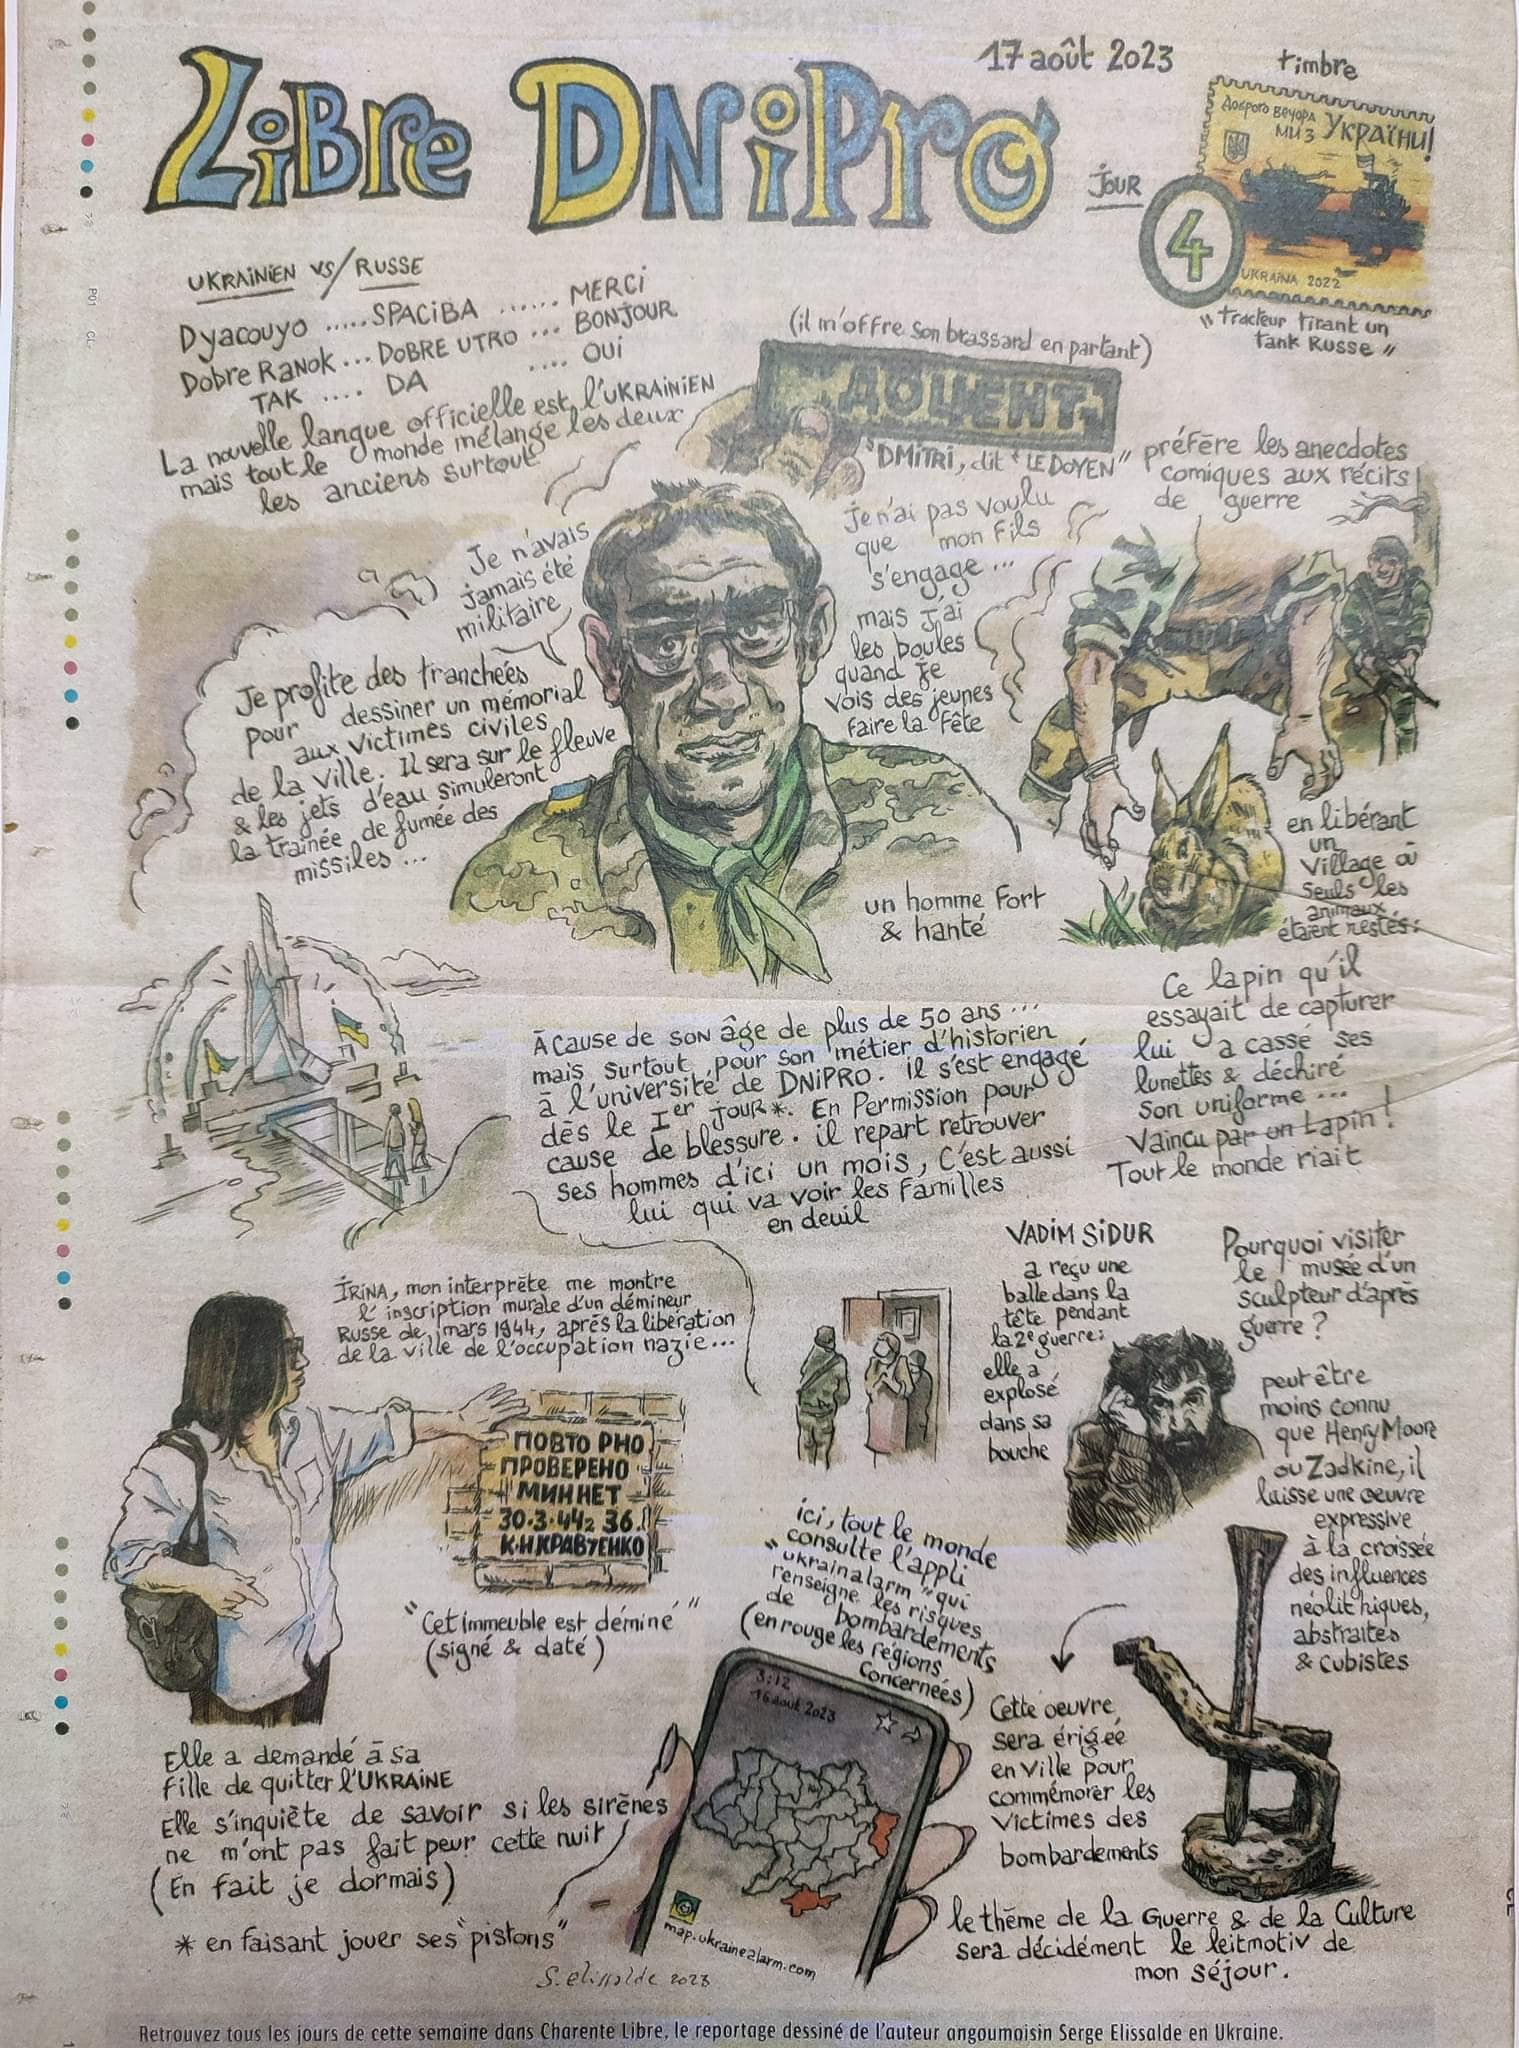 LiBRe DNiPRo
17 août 2023
timbre
Доброго вечора
ми з України!
UKRAINA 2022
JOUR
4
"tracteur tirant un
tank Russe"
UKRAiNiEN VS/ RUSSE
Dyacouyo ..... SPACiBA ...... MERCi
Dobre RaNok ... DoBRE UTRO ... BONJOUR
TAK .... DA .... OUi
La nouvelle langue officielle est l'UKRAiNiEN
mais tout le monde mélange les deux
les anciens surtout
(il m'offre son brassard en partant)
ДОЦЕНТ
"DMiTRi, dit "LE DOYEN"
préfère les anecdotes
comiques aux récits
de guerre
Je n'avais
jamais été
militaire
Je n'ai pas voulu
que mon fils
s'engage...
mais j'ai
les boules
quand je
vois des jeunes
faire la fête
Je profite des tranchées
pour dessiner un mémorial
aux victimes civiles
de la ville. Il sera sur le fleuve
& les jets d'eau simuleront
la trainée de fumée des
missiles...
un homme fort
& hanté
en libérant
un
village où
seuls les
animaux
étaient restés:
Ce lapin qu'il
essayait de capturer
lui a cassé ses
lunettes & déchiré
son uniforme...
Vaincu par un Lapin!
Tout le monde riait
À cause de son âge de plus de 50 ans...
mais surtout pour son métier d'historien
à l'université de DNiPRO. il s'est engagé
dès le Ier jour*. En Permission pour
cause de blessure. il repart retrouver
ses hommes d'ici un mois, C'est aussi
lui qui va voir les familles
en deuil
VADiM SiDUR
a reçu une
balle dans la
tête pendant
la 2e guerre:
elle a
explosé
dans sa
bouche
Pourquoi visiter
le musée d'un
sculpteur d'après
guerre?
peut être
moins connu
que Henry Moore
ou Zadkine, il
laisse une oeuvre
expressive
à la croisée
des influences
néolithiques,
abstraites
& cubistes
İRiNA, mon interprète me montre
l'inscription murale d'un démineur
Russe de mars 1944, après la libération
de la ville de l'occupation nazie...
ПОВТОРНО
ПРОВЕРЕНО
МИН НЕТ
30·3·44г 36.
К·Н КРАВЧЕНКО
"Cet immeuble est déminé"
(signé & daté)
ici, tout le monde
consulte l'appli
"ukrainalarm" qui
renseigne les risques
de bombardements
(en rouge les régions
concernées)
3:12
16 août 2023
map.ukrainealarm.com
Cette oeuvre
sera érigée
en ville pour
commémorer les
victimes des
bombardements
Elle a demandé à sa
fille de quitter l'UKRAINE
Elle s'inquiète de savoir si les sirènes
ne m'ont pas fait peur cette nuit
(En fait je dormais)
* en faisant jouer ses "pistons"
le thème de la Guerre & de la Culture
sera décidément le leitmotiv de
mon séjour.
S. elissalde 2023
Retrouvez tous les jours de cette semaine dans Charente Libre, le reportage dessiné de l'auteur angoumoisin Serge Elissalde en Ukraine.